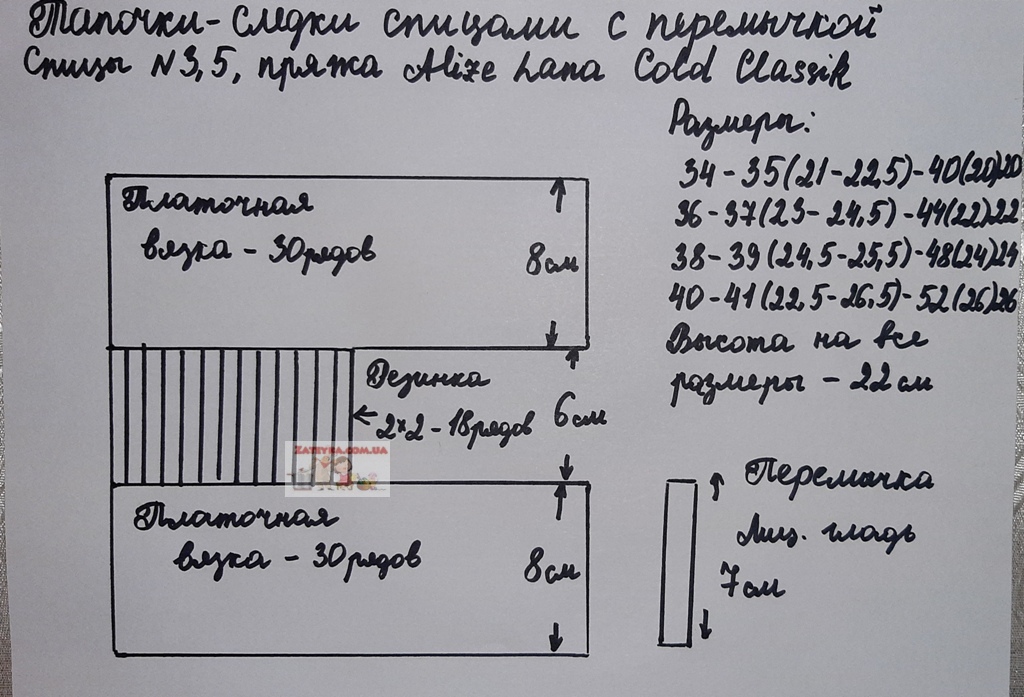 Тапочки-следки спицами с перемычкой
Спицы N3,5, пряжа Alize Lana Cold Classik
Размеры:
34-35(21-22,5)-40(20)20
36-37(23-24,5)-44(22)22
38-39(24,5-25,5)-48(24)24
40-41(22,5-26,5)-52(26)26
Высота на все
размеры - 22 см
Платочная
вязка - 30 рядов
8 см
Резинка
2×2 - 18 рядов
6 см
ZATEYKA.COM.UA
Платочная
вязка - 30 рядов
8 см
Перемычка
Лиц. гладь
7 см